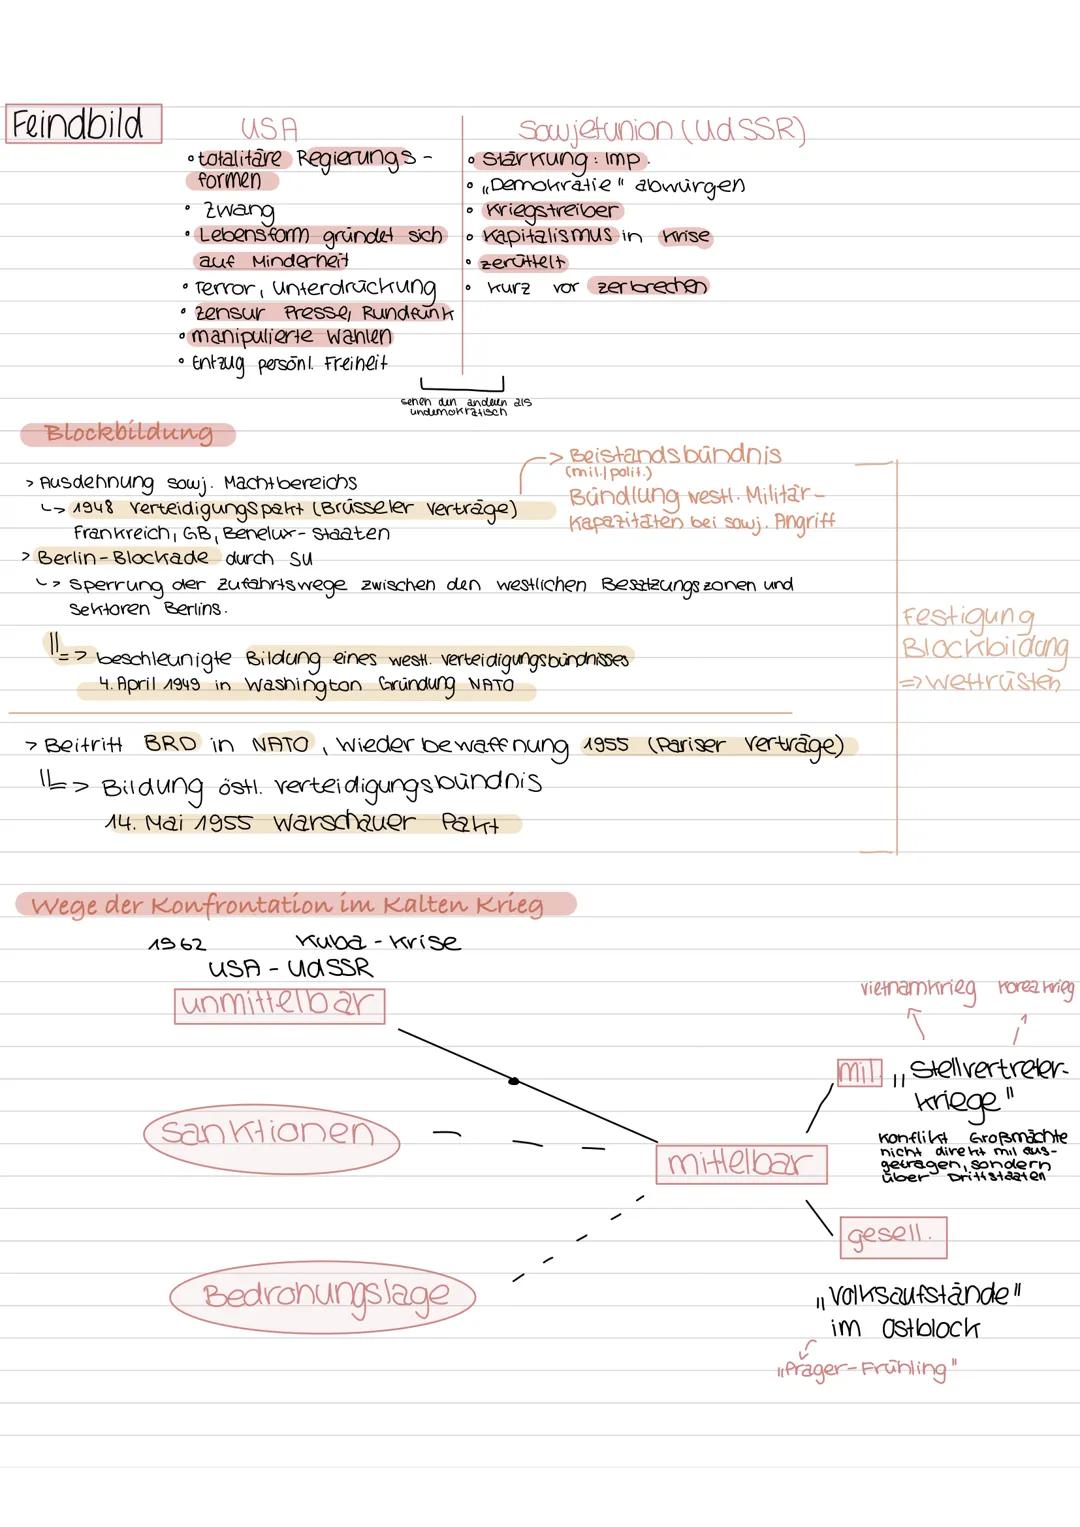 Feindbild
USA
• totalitäre Regierungs-
formen
• Zwang
• Lebensform gründet sich
auf Minderheit
• Terror, Unterdrückung
• Zensur Presse, Rundfunk
• manipulierte Wahlen
• Entzug persönl. Freiheit
Sowjetunion (UdSSR)
• Stärkung: Imp.
• „Demokratie" abwürgen
• Kriegstreiber
• Kapitalismus in Krise
• zerüttelt
• kurz vor zerbrechen
sehen den anderen als
undemokratisch
Blockbildung
> Ausdehnung sowj. Machtbereichs
↳ 1948 Verteidigungspakt (Brüsseler Verträge)
Frankreich, GB, Benelux-Staaten
-> Beistandsbündnis
(mil./polit.)
Bündlung westl. Militär-
Kapazitäten bei sowj. Angriff
> Berlin-Blockade durch SU
↳ Sperrung der Zufahrtswege zwischen den westlichen Besatzungszonen und
Sektoren Berlins.
=> beschleunigte Bildung eines westl. Verteidigungsbündnisses
4. April 1949 in Washington Gründung NATO
Festigung
Blockbildung
=> Wettrüsten
> Beitritt BRD in NATO, Wiederbewaffnung 1955 (Pariser Verträge)
=> Bildung östl. Verteidigungsbündnis
14. Mai 1955 Warschauer Pakt
Wege der Konfrontation im Kalten Krieg
1962 Kuba-Krise
USA - UdSSR
unmittelbar
Vietnamkrieg Koreakrieg
mil. „Stellvertreter-
kriege"
Konflikt Großmächte
nicht direkt mil aus-
getragen, sondern
über Drittstaaten
Sanktionen
mittelbar
gesell.
Bedrohungslage
„Volksaufstände"
im Ostblock
„Prager-Frühling"